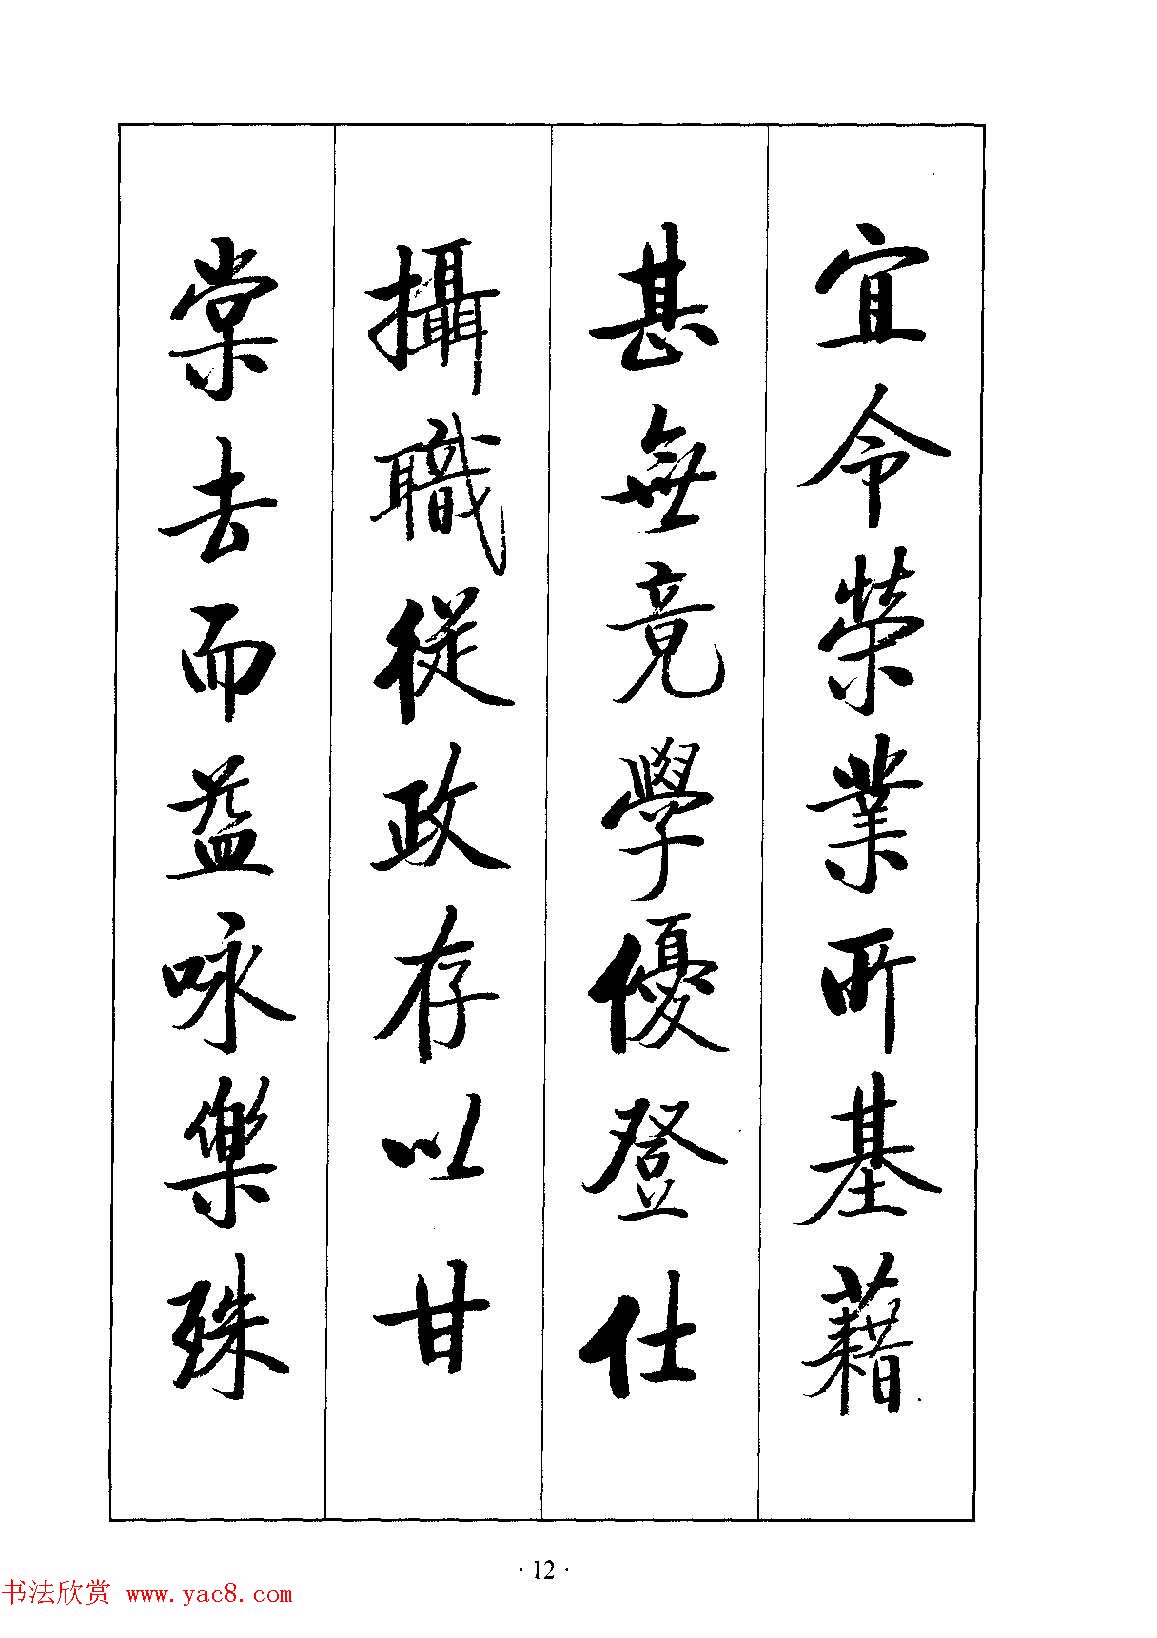 宜令榮業所基藉
甚無竟學優登仕
攝職從政存以甘
棠去而益咏樂殊
·12·
书法欣赏 www.yac8.com